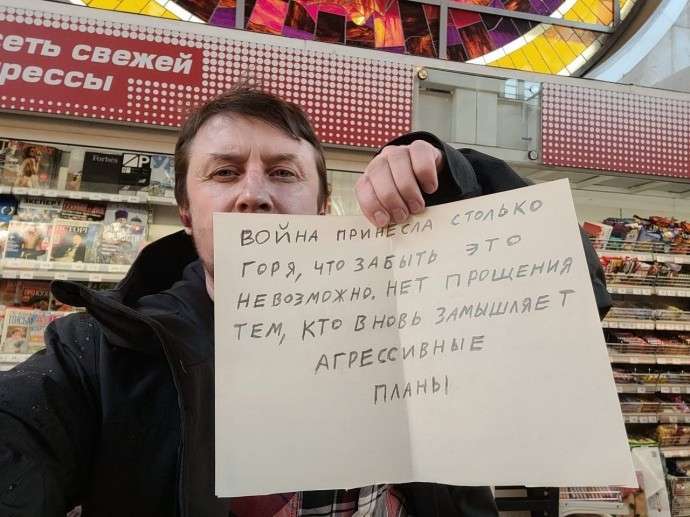 сеть свежей
прессы
Forbes
ВОЙНА ПРИНЕСЛА СТОЛЬКО
ГОРЯ, ЧТО ЗАБЫТЬ ЭТО
НЕВОЗМОЖНО. НЕТ ПРОЩЕНИЯ
ТЕМ, КТО ВНОВЬ ЗАМЫШЛЯЕТ
АГРЕССИВНЫЕ
ПЛАНЫ